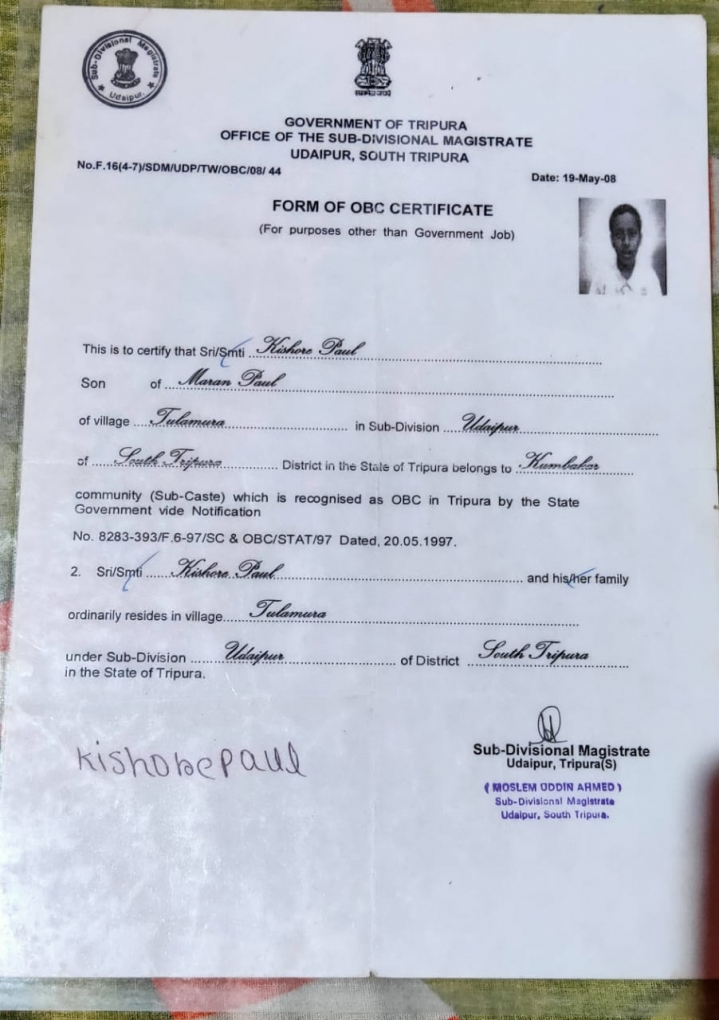 Sub-Divisional Magistrate
Udaipur.
GOVERNMENT OF TRIPURA
OFFICE OF THE SUB-DIVISIONAL MAGISTRATE
UDAIPUR, SOUTH TRIPURA
No.F.16(4-7)/SDM/UDP/TW/OBC/08/ 44
Date: 19-May-08
FORM OF OBC CERTIFICATE
(For purposes other than Government Job)
This is to certify that Sri/Smti Kishore Paul
Son of Maran Paul
of village Tulamura in Sub-Division Udaipur
of South Tripura District in the State of Tripura belongs to Kumbakar
community (Sub-Caste) which is recognised as OBC in Tripura by the State
Government vide Notification
No. 8283-393/F.6-97/SC & OBC/STAT/97 Dated, 20.05.1997.
2. Sri/Smti Kishore Paul and his/her family
ordinarily resides in village Tulamura
under Sub-Division Udaipur of District South Tripura
in the State of Tripura.
Kishore Paul
Sub-Divisional Magistrate
Udaipur, Tripura(S)
( MOSLEM UDDIN AHMED )
Sub-Divisional Magistrate
Udaipur, South Tripura.